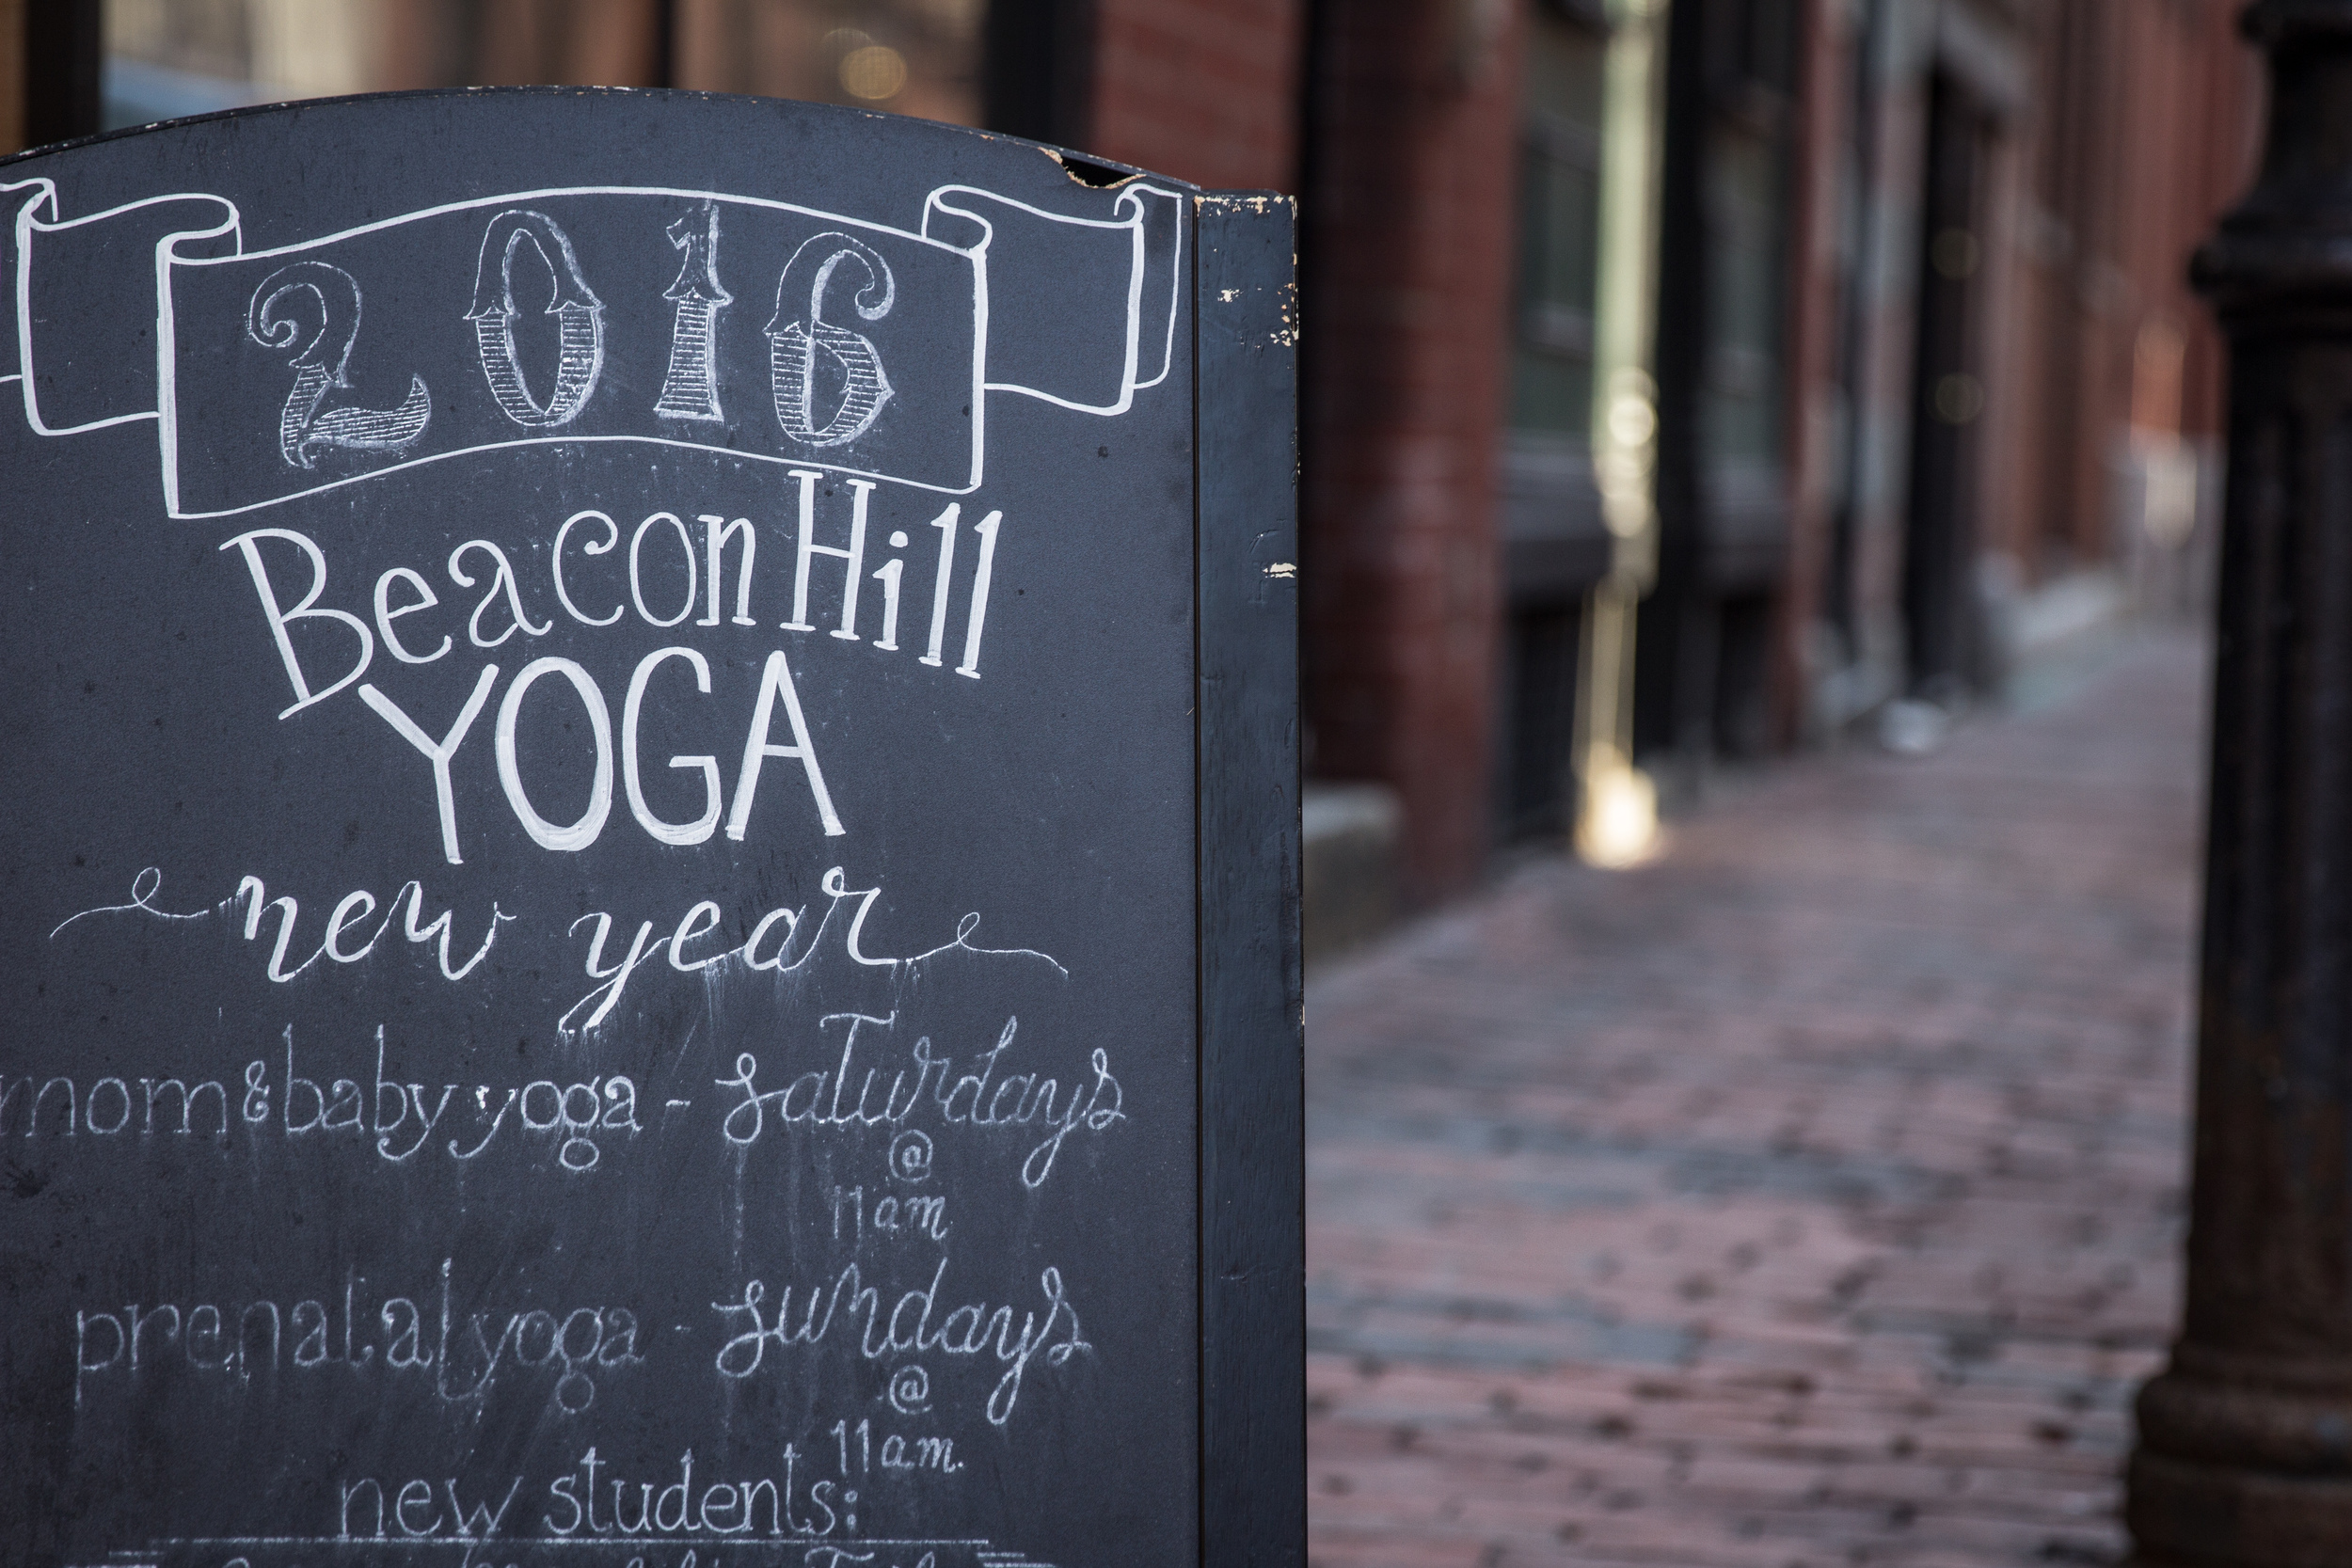 2016
Beacon Hill
YOGA
new year
mom & baby yoga - saturdays
@
11am
prenatal yoga - sundays
@
11am.
new students: